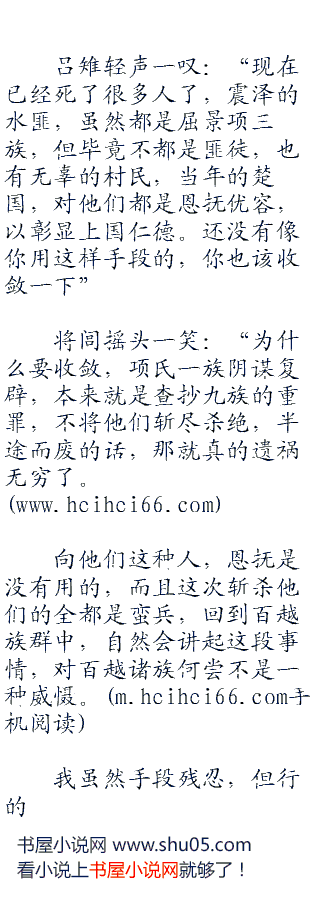 吕雉轻声一叹：“现在
已经死了很多人了，震泽的
水匪，虽然都是屈景项三
族，但毕竟不都是匪徒，也
有无辜的村民，当年的楚
国，对他们都是恩抚优容，
以彰显上国仁德。还没有像
你用这样手段的，你也该收
敛一下”
将闾摇头一笑：“为什
么要收敛，项氏一族阴谋复
辟，本来就是查抄九族的重
罪，不将他们斩尽杀绝，半
途而废的话，那就真的遗祸
无穷了。
(www.hcihci66.com)
向他们这种人，恩抚是
没有用的，而且这次斩杀他
们的全都是蛮兵，回到百越
族群中，自然会讲起这段事
情，对百越诸族何尝不是一
种威慑。(m.hcihci66.com手
机阅读)
我虽然手段残忍，但行
的
书屋小说网 www.shu05.com
看小说上书屋小说网就够了！